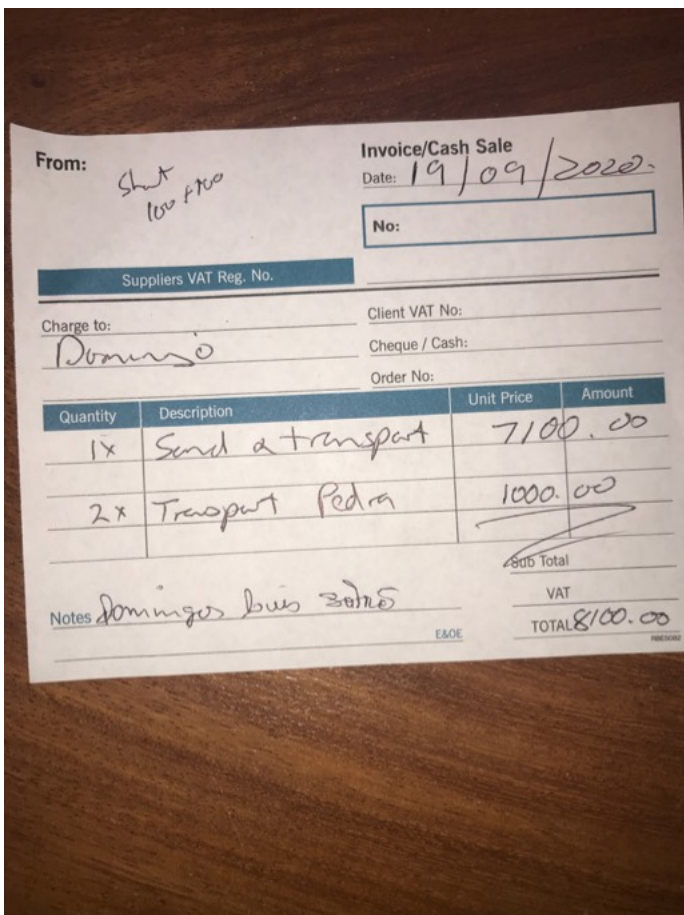 From:
Invoice/Cash Sale
Date: 19/09/2020.
No:
Suppliers VAT Reg. No.
Charge to:
Client VAT No:
Cheque / Cash:
Order No:
Quantity Description Unit Price Amount
1x Sand & transport 7100.00
2x Transport Pedra 1000.00
Sub Total
VAT
Notes Domingos
E&OE
TOTAL 8100.00